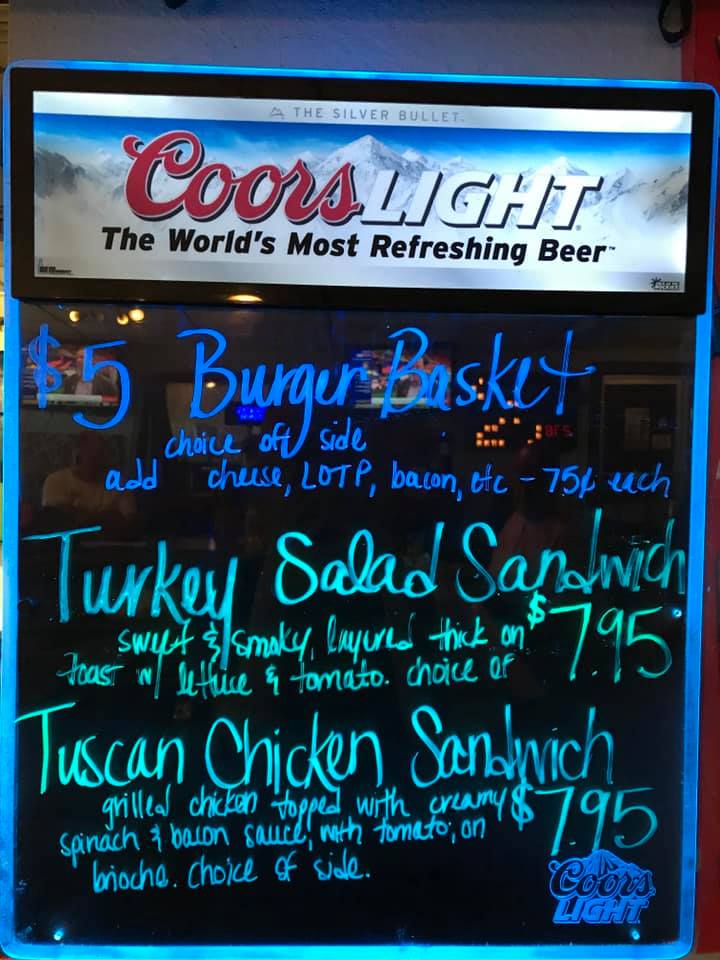 THE SILVER BULLET.
Coors LIGHT
The World's Most Refreshing Beer™
$5 Burger Basket
choice off side
add cheese, LOTP, bacon, etc - 75¢ each
Turkey Salad Sandwich
sweet & smoky, layered thick on $7.95
toast w/ lettuce & tomato. choice of
Tuscan Chicken Sandwich
grilled chicken topped with creamy $7.95
spinach & bacon sauce, with tomato, on
brioche. Choice of side.
Coors
LIGHT